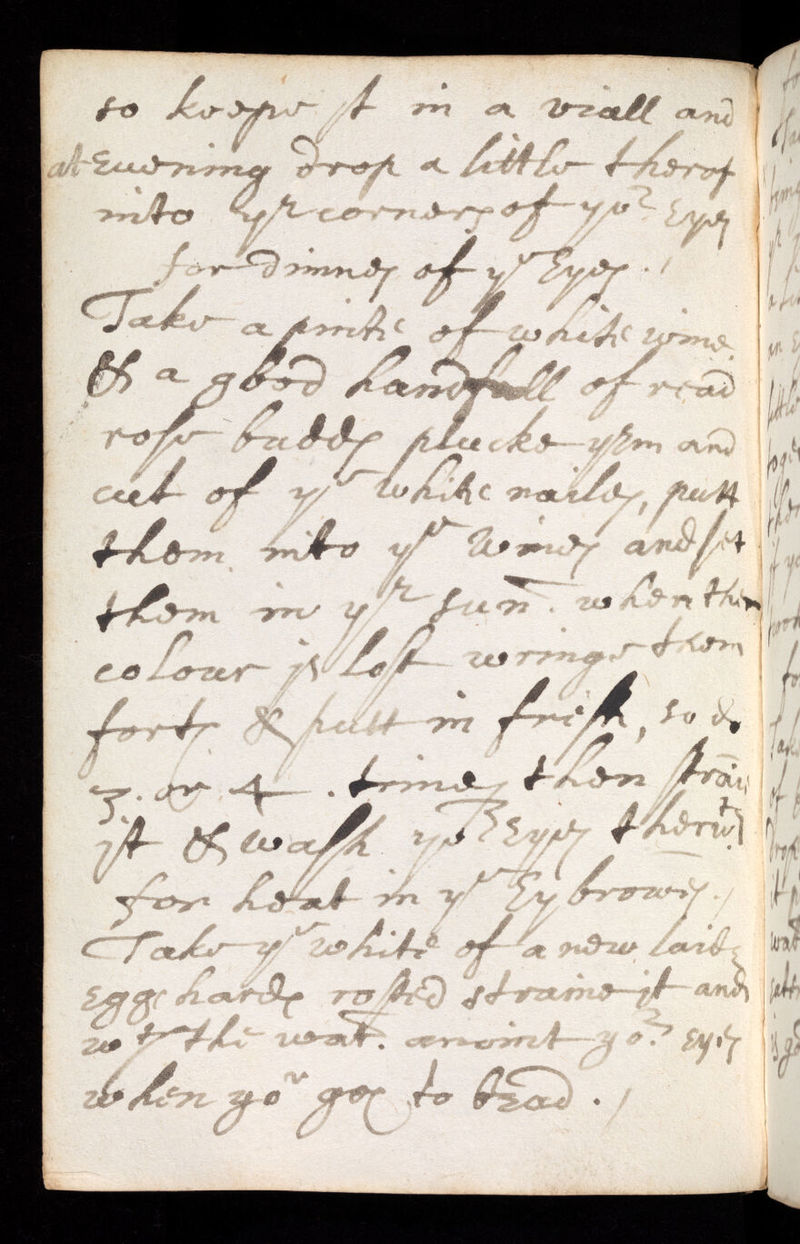 so keepe it in a viall and
at Euening drop a little therof
into yr corners of yor Eyes
for dimnes of ye Eyes ./
Take a pinte of white wine
& a good handfull of read
rose budds plucke yrm and
cut of ye white nailes, putt
them into ye Wines and set
them in yr sun . when ther
colour is lost wringe them
forth & putt in fresh, so do
3. or 4 . times then strain
it & wash yor Eyes therwt
for heat in ye Eybrowes ./
Take ye white of a new laide
Egge hard rosted straine it and
wth the wat. anoint yor Eyes
when you goe to bead ./